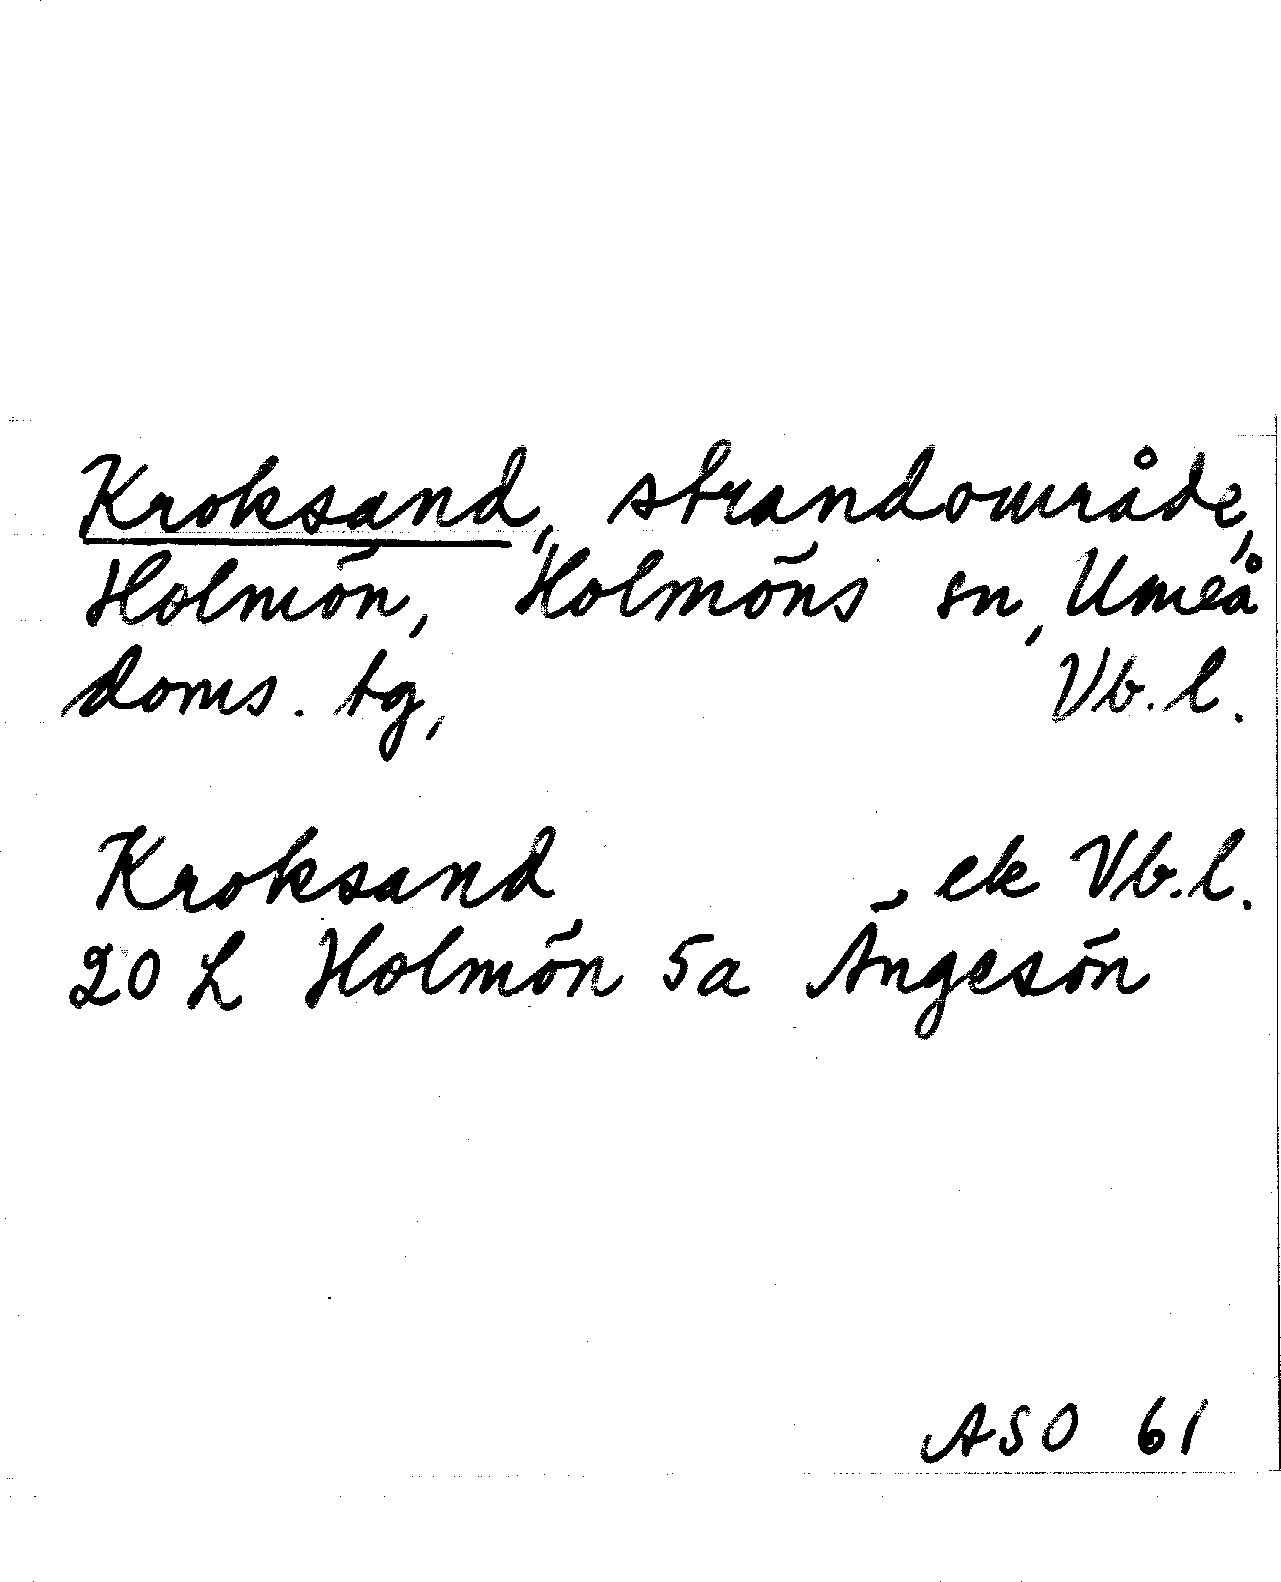 Kroksand, strandområde,
Holmön, Holmöns sn, Umeå
doms. tg, Vb. l.
Kroksand ek Vb. l.
20 L Holmön 5a Ängesön
ASO 61